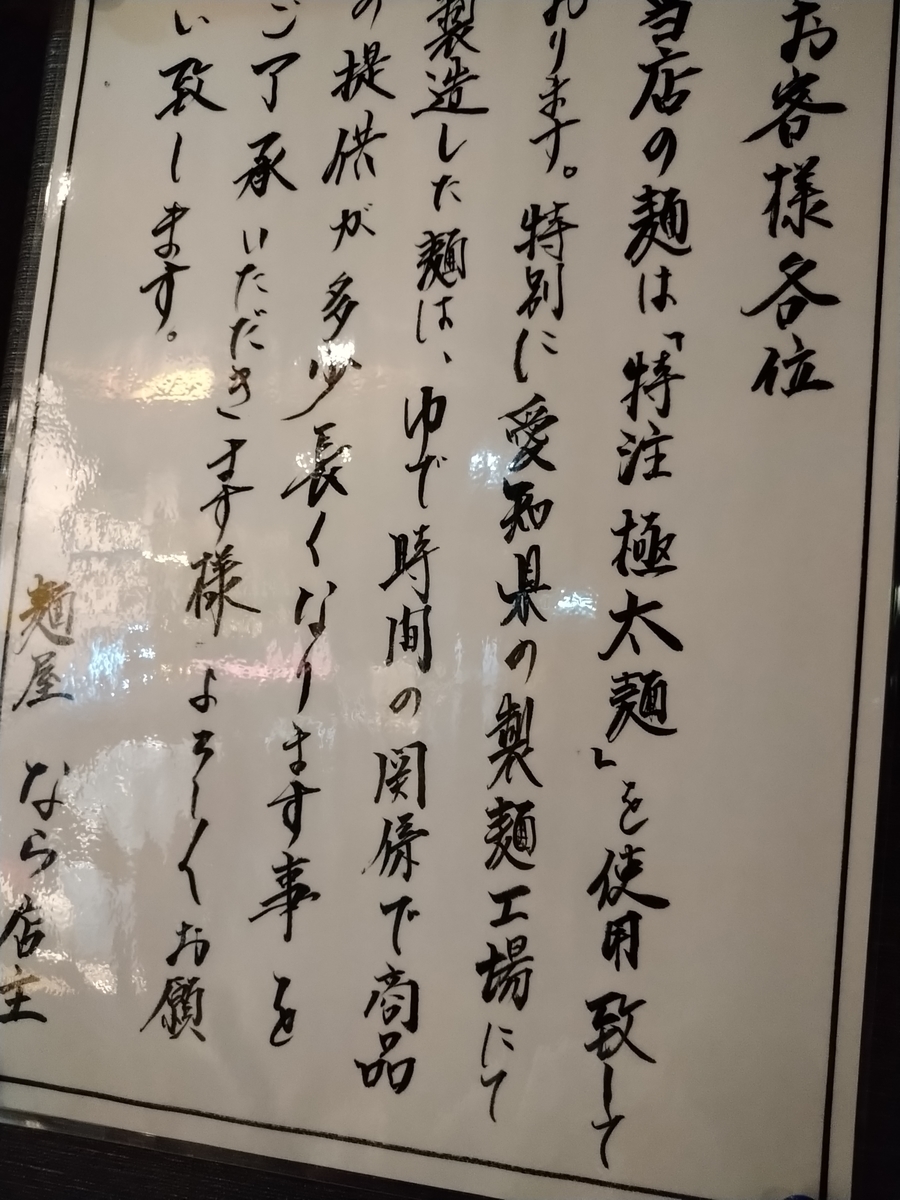 お客様各位
当店の麺は「特注極太麺」を使用致して
おります。特別に愛知県の製麺工場にて
製造した麺は、ゆで時間の関係で商品
の提供が多少長くなります事を
ご了承いただきます様よろしくお願
い致します。
麺屋 なら店主